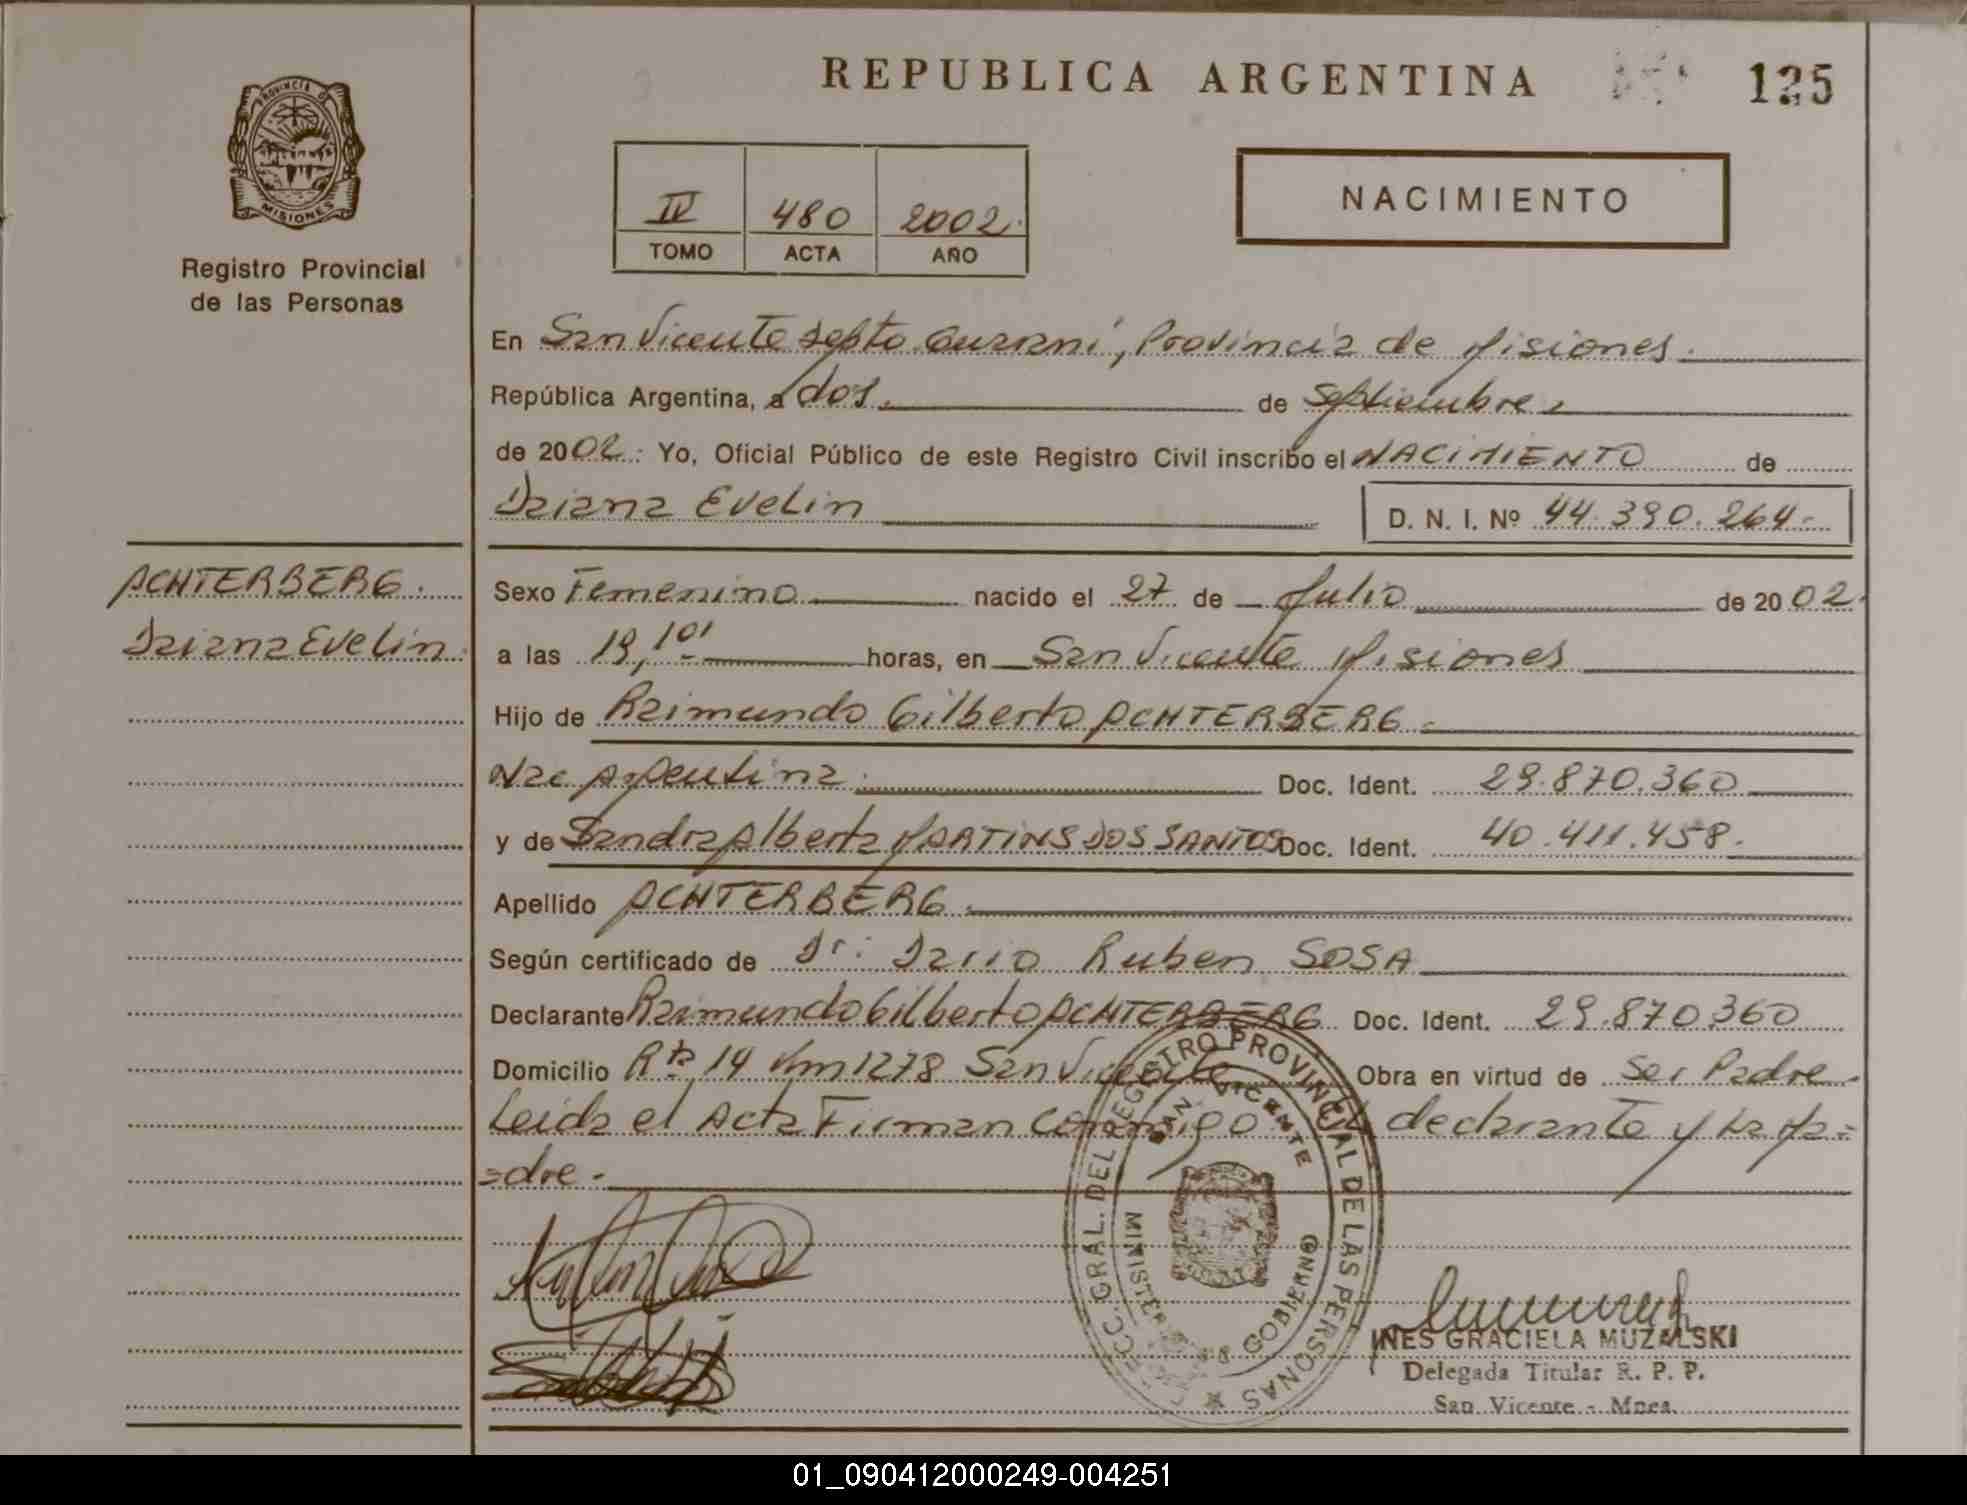 REPUBLICA ARGENTINA
125
PROVINCIA DE
MISIONES
Registro Provincial
de las Personas
IV 480 2002.
TOMO ACTA AÑO
NACIMIENTO
En San Vicente Depto Guaraní, Provincia de Misiones.
República Argentina, a dos. de Septiembre
de 2002.: Yo, Oficial Público de este Registro Civil inscribo el NACIMIENTO de
Daiana Evelin
D. N. I. Nº 44.390.264.-
ACHTERBERG.
Daiana Evelin.
Sexo Femenino nacido el 27 de Julio de 2002.
a las 19,10' horas, en San Vicente Misiones
Hijo de Raimundo Gilberto ACHTERBERG.
Nac Argentina. Doc. Ident. 29.870.360
y de Sandra Alberta MARTINS DOS SANTOS Doc. Ident. 40.411.458.
Apellido ACHTERBERG.
Según certificado de Dr: Dario Ruben SOSA
Declarante Raimundo Gilberto ACHTERBERG Doc. Ident. 29.870.360
Domicilio Rta 14 Km 1278 San Vicente Obra en virtud de Ser Padre
Leida el Acta Firman Conmigo declarante y La Ma=
=dre.
DIRECC. GRAL. DEL REGISTRO PROVINCIAL DE LAS PERSONAS
SAN VICENTE
MINISTERIO DE GOBIERNO
INES GRACIELA MUZALSKI
Delegada Titular R. P. P.
San Vicente - Mnes.
01_090412000249-004251